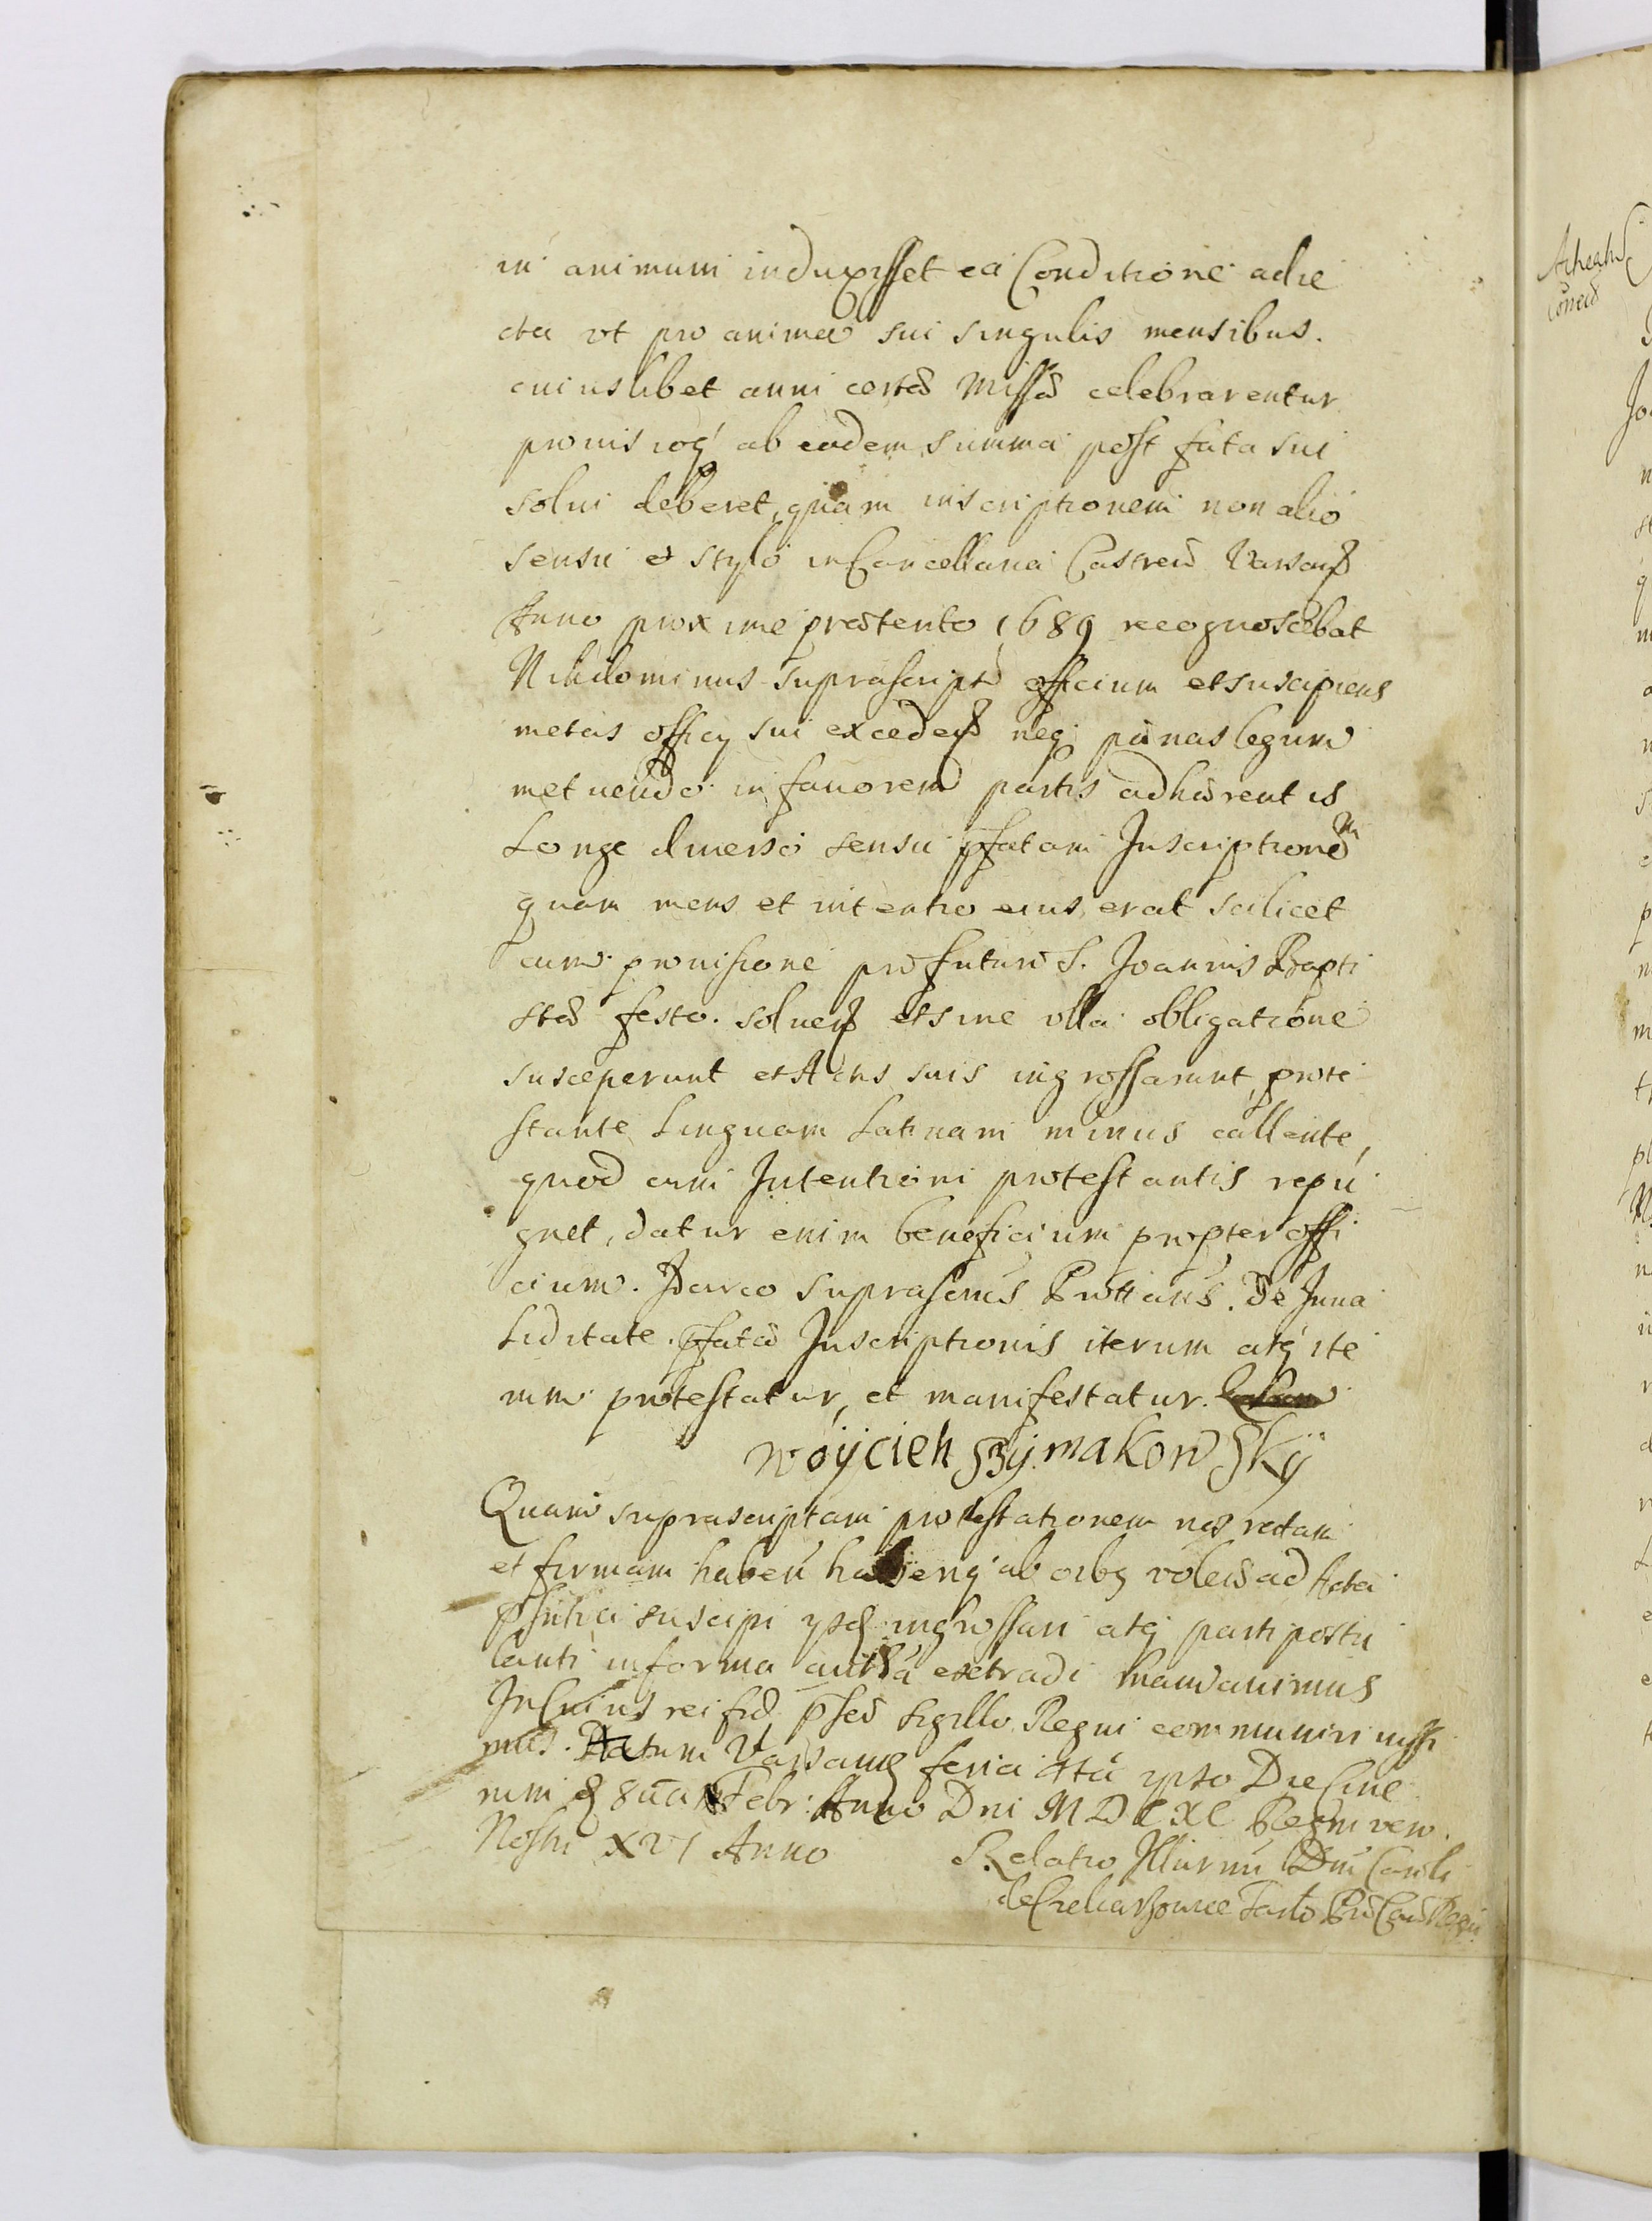 in animum induxisset ea Conditione adie
cta vt pro anima sui singulis mensibus.
cuiuslibet anni certæ Missæ celebrarentur
prouisioq́ ab eadem summa post fata sui
solui deberet, quam inscriptionem non alio
sensu et stylo in Cancellaria Castren Varsauien
Anno proxime præterito 1689 recognoscebat
Nihilominus suprascript officium et suscipiens
metas officij sui exceden neq pænas legum
metuendo in fauorem partis adhærentis
Longe diuerso sensu pfatam Inscriptionem
quam mens et intentio eius erat scilicet
cum prouisione pro futuro S. Joannis Bapti
stæ festo. soluen et sine vlla obligatione
susceperunt et Actis suis ingrossarunt, prote
stante Linguam Latinam minus callente,
quod cum Intentioni protestantis repu
gnet, datur enim beneficium propter offi
cium. Idcirco suprascrius Prottans. De Inua
liditate pfatæ Inscriptionis iterum atq́ ite
rum protestatur, et manifestatur.
woÿcieh szÿmakowskÿ
Quam suprascriptam protestationem nos ratam
et firmam haben haberiq́ ab oibq volen ad Acta
pſntia suscipi ysq ingrossari atq́ parti postu
lanti in forma auttca extradi mandauimus
In Cuius rei fid pſen sigillo Regni communiri iussi
mus. Datum Varsauiæ feria 4ta ipso Die Cine
rum 8ua Febr: Anno Dni MDCXC Regni vero
Nostri XVI Anno
Relatio Illurmi Dni Caroli
de Czekarzowice Tarlo Pro Can Regni
Acticatio